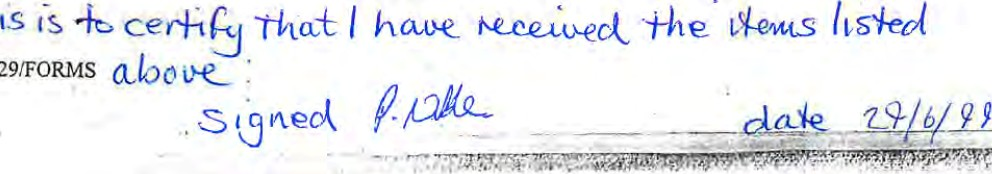 is is to certify that I have received the items listed
29/FORMS above
signed P. date 29/6/99